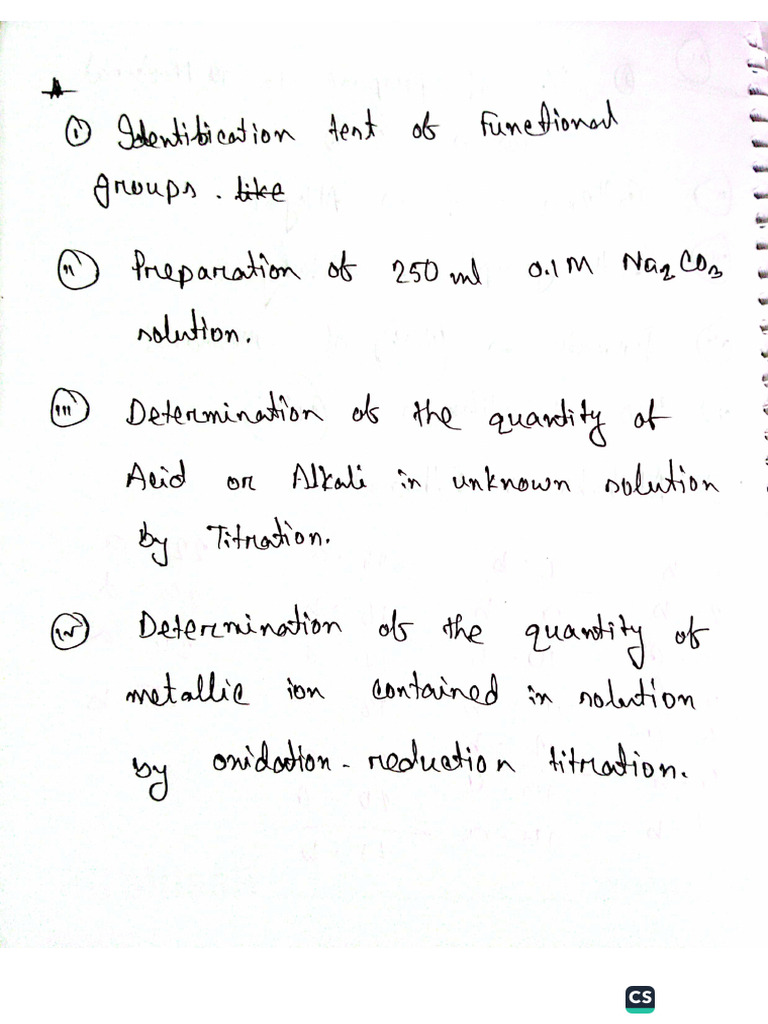 (i) Identification test of Functional
groups. like
(ii) Preparation of 250 ml 0.1M Na2CO3
solution.
(iii) Determination of the quantity of
Acid or Alkali in unknown solution
by Titration.
(iv) Determination of the quantity of
metallic ion contained in solution
by oxidation-reduction titration.
CS